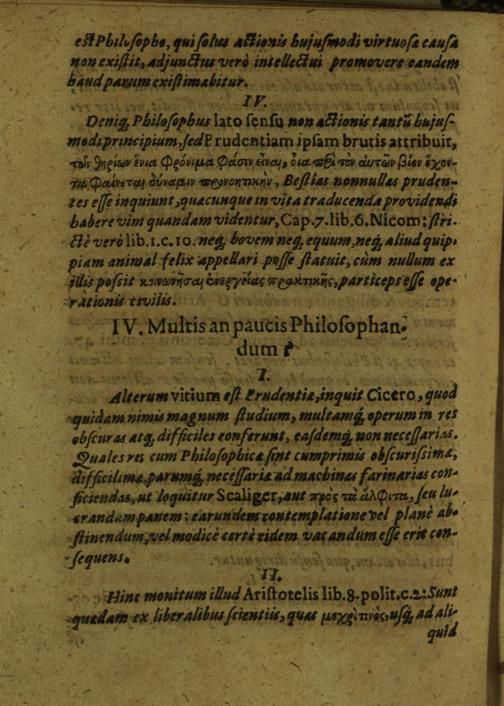 est Philosopho, qui solus actionis hujusmodi virtuosa causa
non existit, adjunctus verò intellectui promovere eandem
haud parum existimabitur.
IV.
Deniq; Philosophus lato sensu non actionis tantũ hujus-
modi principium, sed Prudentiam ipsam brutis attribuit,
τῶν θηρίων ἔνια Φρόνιμα Φάσιν εἶναι, ὅσα περὶ τον αυτῶν βίον ἔχον-
τα Φαίνεται δύναμιν προνοητικὴν, Bestias nonnullas pruden-
tes esse inquiunt, quæcunque in vita traducenda providendi
habere vim quandam videntur, Cap. 7. lib. 6. Nicom: stri-
ctè verò lib. 1. c. 10. neq; bovem neq; equum, neq; aliud quip-
piam animal felix appellari posse statuit, cùm nullum ex
illis possit κοινωνῆσαι ἐνεργείας πρακτικῆς, particeps esse ope-
rationis civilis.
IV. Multis an paucis Philosophan-
dum?
I.
Alterum vitium est Prudentiæ, inquit Cicero, quod
quidam nimis magnum studium, multamq; operum in res
obscuras atq; difficiles conferunt, easdemq; non necessarias.
Quales res cum Philosophicæ sint cumprimis obscurissimæ,
difficilimæ, parumq; necessariæ ad machinas farinarias con-
ficiendas, ut loquitur Scaliger, aut πρὸς τὰ ἄλφιτα, seu lu-
crandum panem: earundem contemplatione vel planè abs-
tinendum, vel modicè certè eidem vacandum esse erit con-
sequens.
II.
Hinc monitum illud Aristotelis lib. 8. polit. c. 2: Sunt
quædam ex liberalibus scientiis, quas μεχρὶ τινὸς, usq; ad ali-
quid